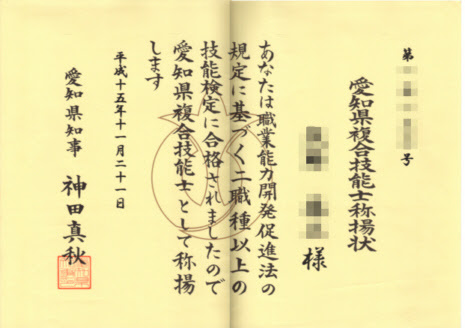 第 号
愛知県複合技能士称揚状
様
あなたは職業能力開発促進法の
規定に基づく二職種以上の
技能検定に合格されましたので
愛知県複合技能士として称揚
します
平成十五年十一月二十一日
愛知県知事 神田真秋